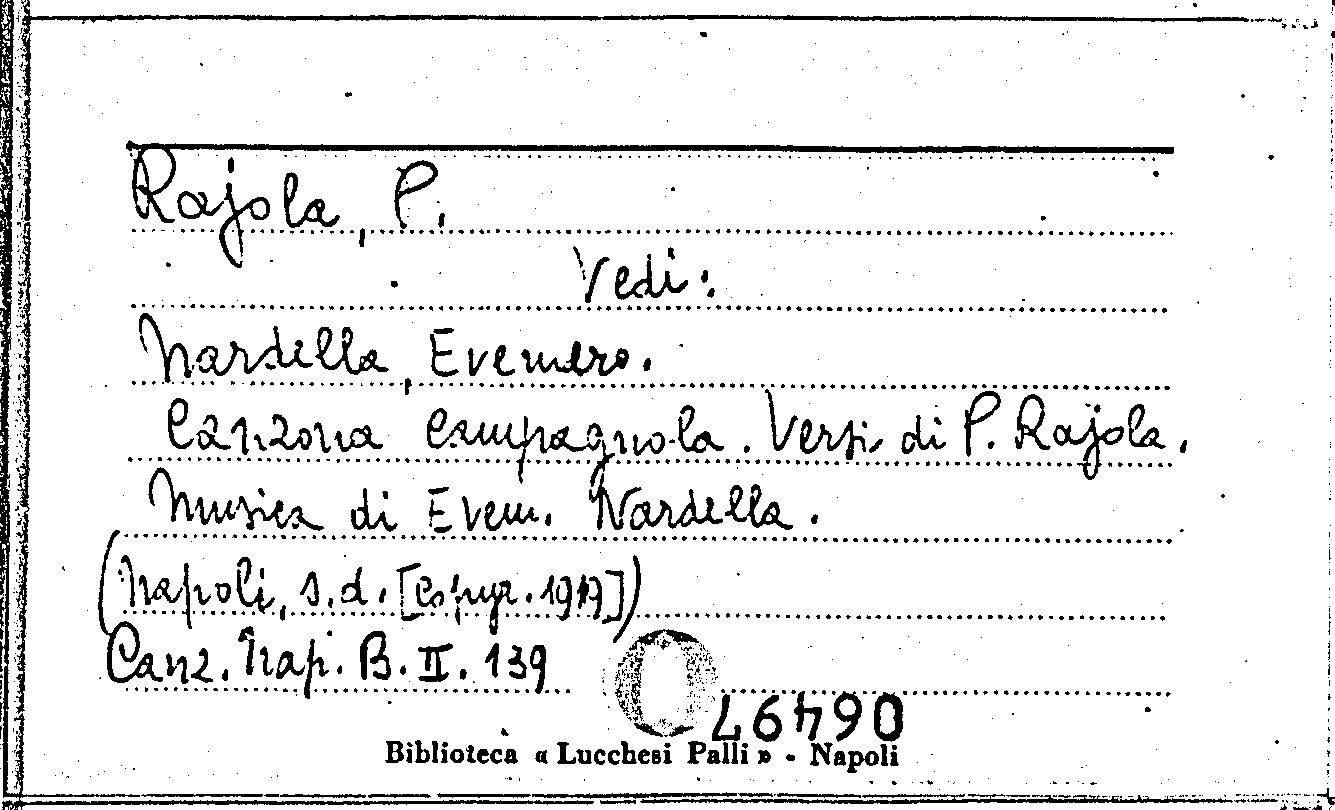 Rajola, P.
Vedi:
Nardella, Evemero.
Canzona campagnola. Versi di P. Rajola.
Musica di Evem. Nardella.
(Napoli, s.d. [Copyr. 1917])
Canz. Nap. B. II. 139
06497
Biblioteca « Lucchesi Palli » - Napoli